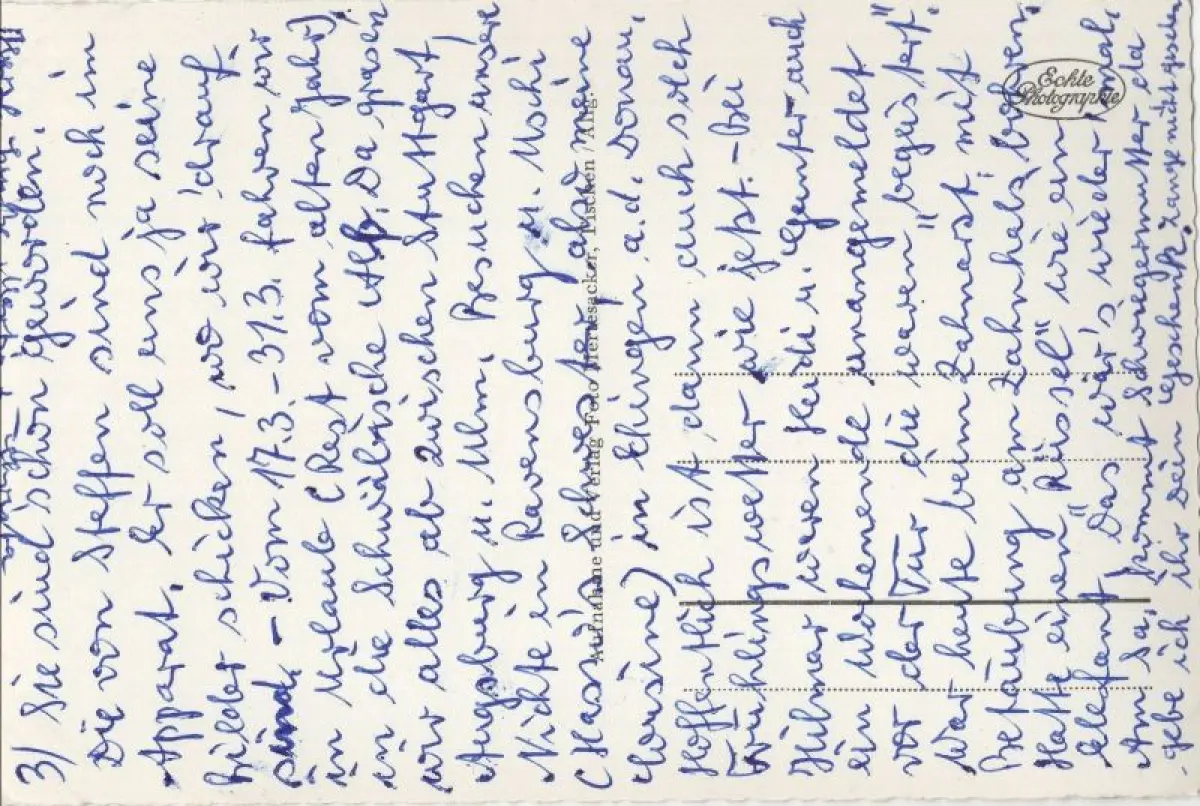 3/ Sie sind schön geworden.
Die von Steffen sind noch im
Apparat. Er soll uns ja seine
Bilder schicken, wo wir drauf
sind. – Vom 17.3. – 31.3. fahren wir
in Urlaub (Rest vom alten Jahr)
in die Schwäbische Alb. Da grasen
wir alles ab zwischen Stuttgart,
Augsburg u. Ulm. Besuchen unsere
Nichte in Ravensburg u. Uschi
(Hasis Schwester, also meine
Cousine) in Ehingen a. d. Donau.
Hoffentlich ist dann auch solch
Frühlingswetter wie jetzt. – Bei
Hilmar waren Heidi u. Günter auch
ein Wochenende unangemeldet
vor der Tür. Die waren "begeistert".
War heute beim Zahnarzt, mit
Betäubung am Zahnhals bohren.
Hatte einen "Rüssel" wie ein
Elefant. Das wär's wieder mal.
Am Sa. kommt Schwiegermutter da
gebe ich ihr Dein Geschenk. Lange nicht gesehen.
Echte
Photographie
Aufnahme und Verlag Foto Heimhuber, Fischen / Allg.